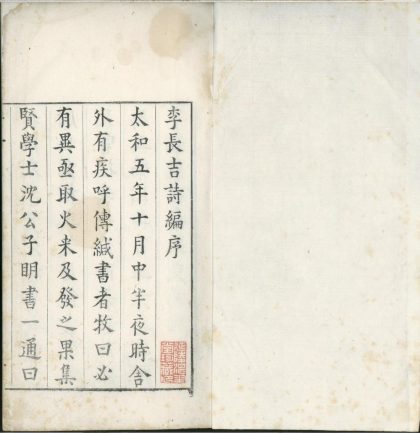 李長吉詩編序
太和五年十月中半夜時舎
外有疾呼傳緘書者牧曰必
有異亟取火来及發之果集
賢學士沈公子明書一通曰